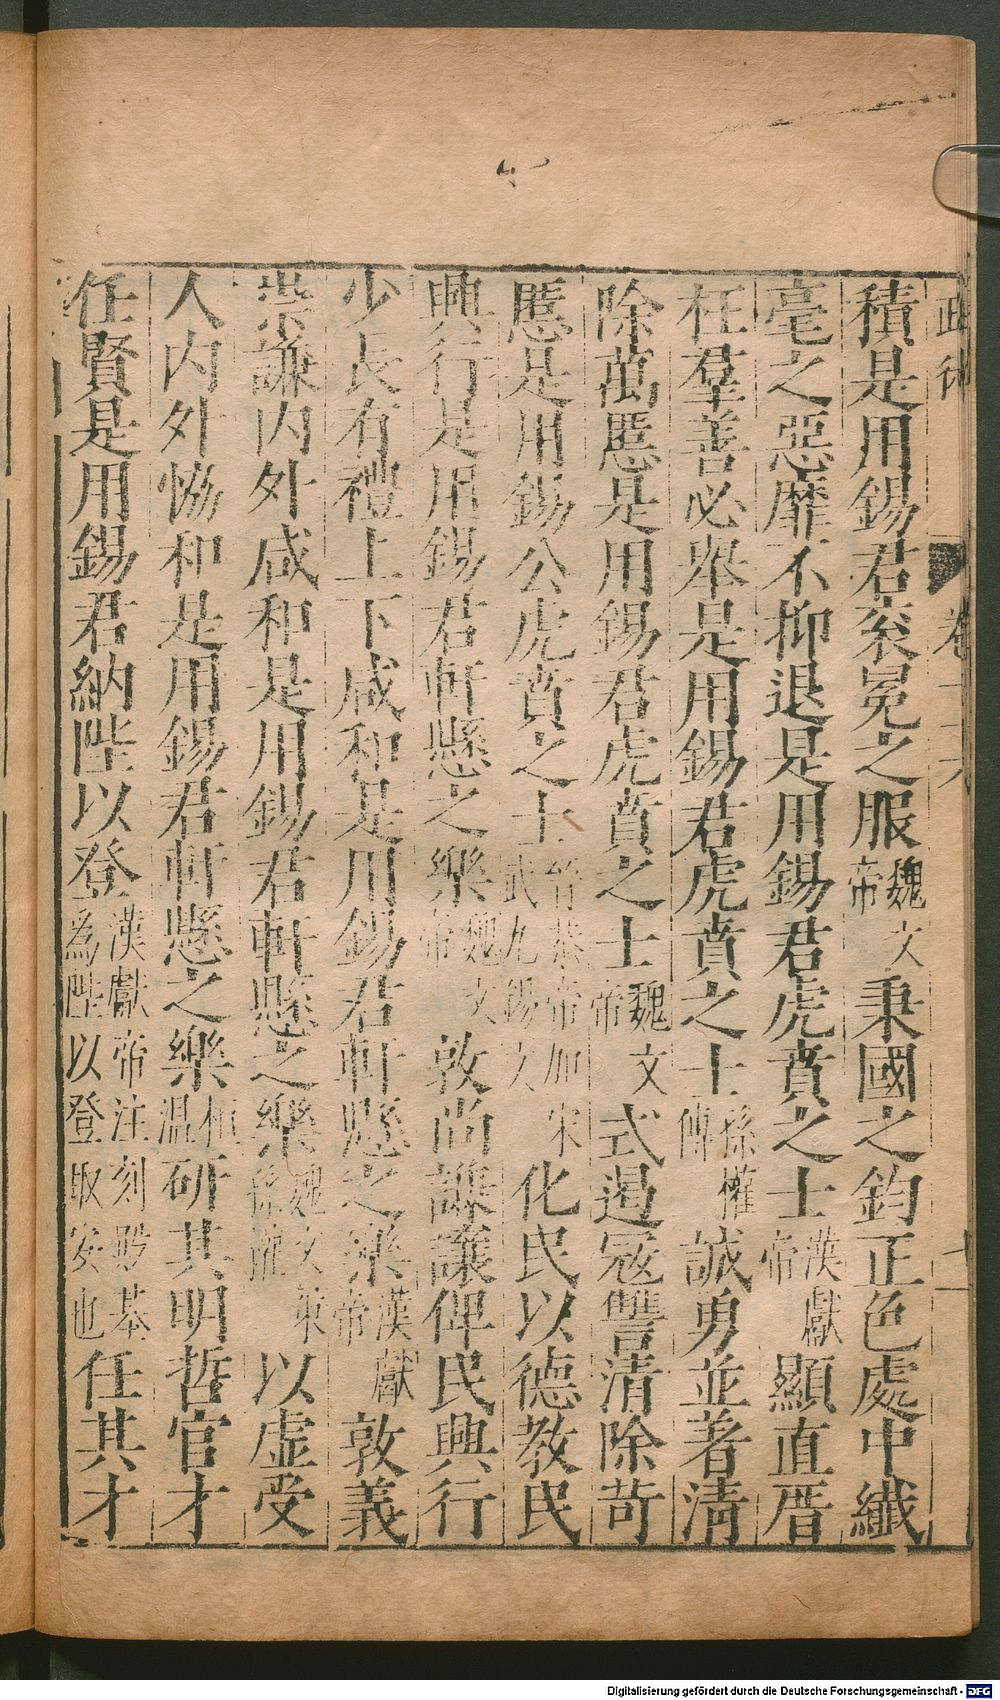 積是用錫君衮冕之服魏文帝秉國之鈞正色處中纖
毫之惡靡不抑退是用錫君虎賁之士漢獻帝顯直厝
枉羣善必舉是用錫君虎賁之士孫權傳誠勇並著清
除萬慝是用錫君虎賁之士魏文帝式遏宼讐清除苛
慝是用錫公虎賁之士晉恭帝加宋武九錫文化民以德教民
興行是用錫君軒懸之樂魏文帝敦尚謙讓俾民興行
少長有禮上下咸和是用錫君軒懸之樂漢獻帝敦義
崇謙内外咸和是用錫君軒懸之樂魏文策孫權以虚受
人内外恊和是用錫君軒懸之樂桓温研其明哲官才
任賢是用錫君納陛以登漢獻帝注刻於基為陛以登取安也任其才
Digitalisierung gefördert durch die Deutsche Forschungsgemeinschaft - DFG